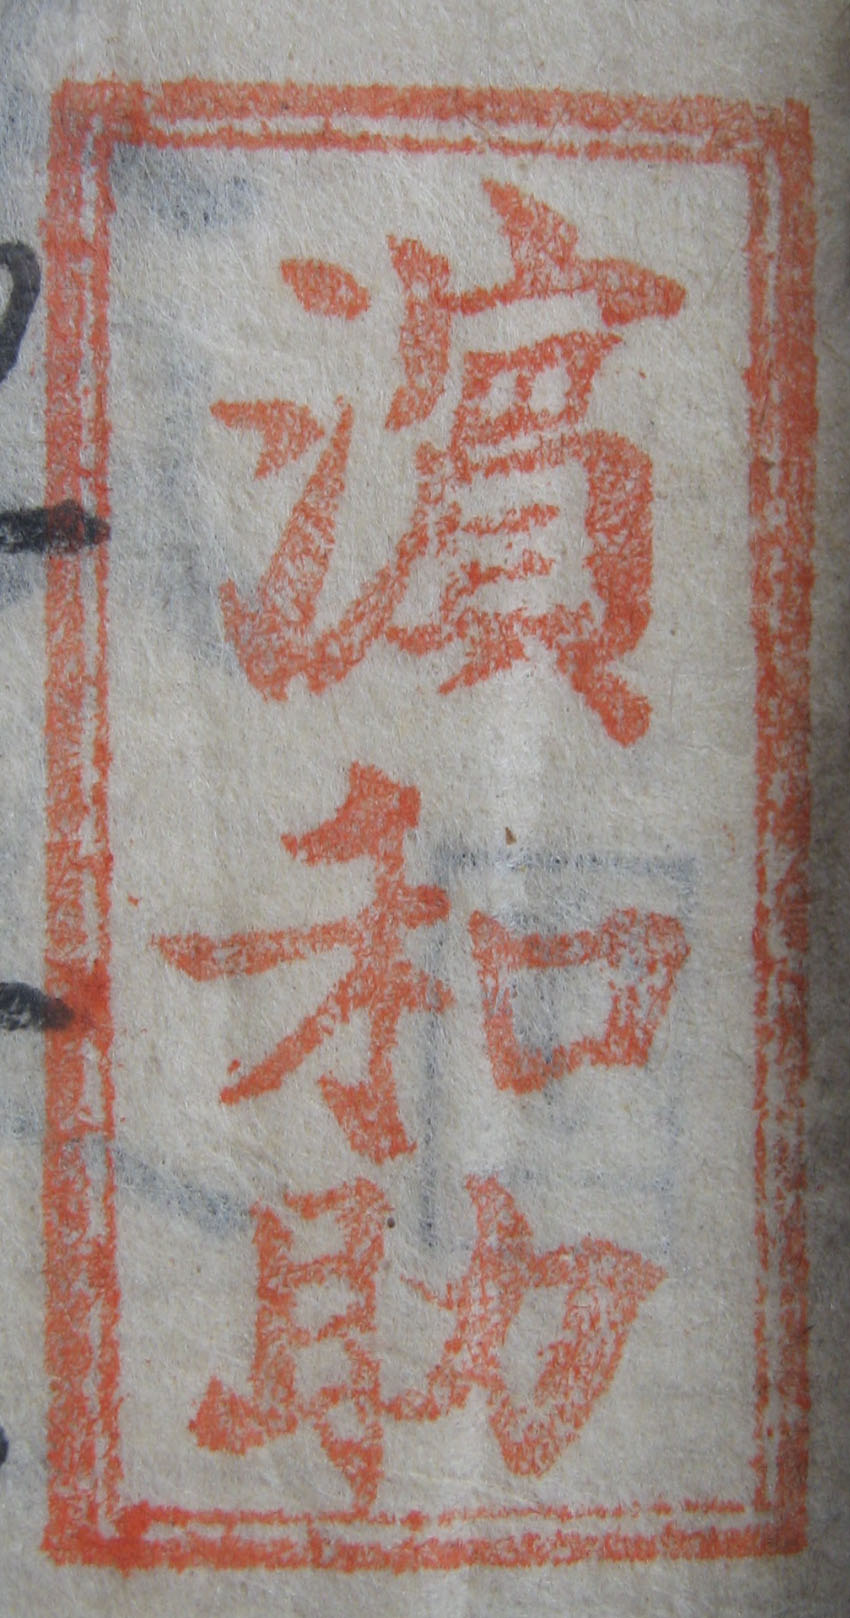 濱和助